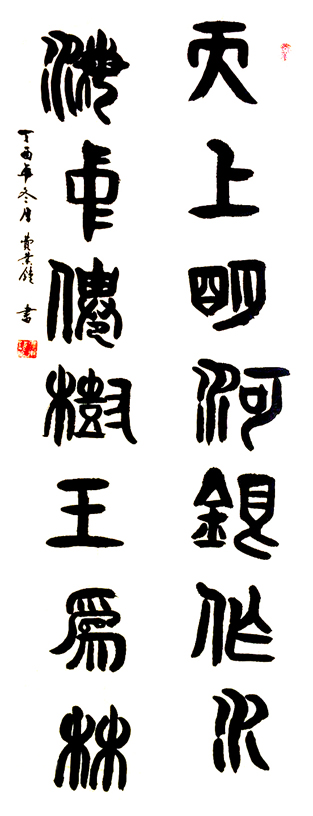 天上明河銀作水
海中僊樹玉為林
丁酉年冬月 費 書